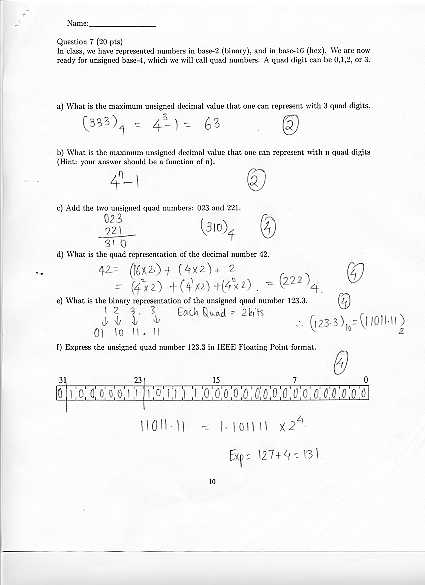 Name:
Question 7 (20 pts)
In class, we have represented numbers in base-2 (binary), and in base-16 (hex). We are now
ready for unsigned base-4, which we will call quad numbers. A quad digit can be 0,1,2, or 3.
a) What is the maximum unsigned decimal value that one can represent with 3 quad digits.
(333)₄ = 4³-1 = 63. (2)
b) What is the maximum unsigned decimal value that one can represent with n quad digits
(Hint: your answer should be a function of n).
4ⁿ-1 (2)
c) Add the two unsigned quad numbers: 023 and 221.
023
221
310
(310)₄ (4)
d) What is the quad representation of the decimal number 42.
42= (16x2)+ (4x2)+ 2
= (4²x2) +(4¹x2)+(4⁰x2). = (222)₄. (4)
e) What is the binary representation of the unsigned quad number 123.3.
1 2 3. 3 Each Quad = 2bits (4)
↓ ↓ ↓ ↓
01 10 11 . 11 ∴ (123.3)₁₀=(11011.11)₂
f) Express the unsigned quad number 123.3 in IEEE Floating Point format.
(4)
31 23 15 7 0
0 1 0 0 0 0 0 1 1 1 0 1 1 1 1 0 0 0 0 0 0 0 0 0 0 0 0 0 0 0 0 0
11011.11 = 1.101111 x 2⁴
Exp = 127+4 = 131
10